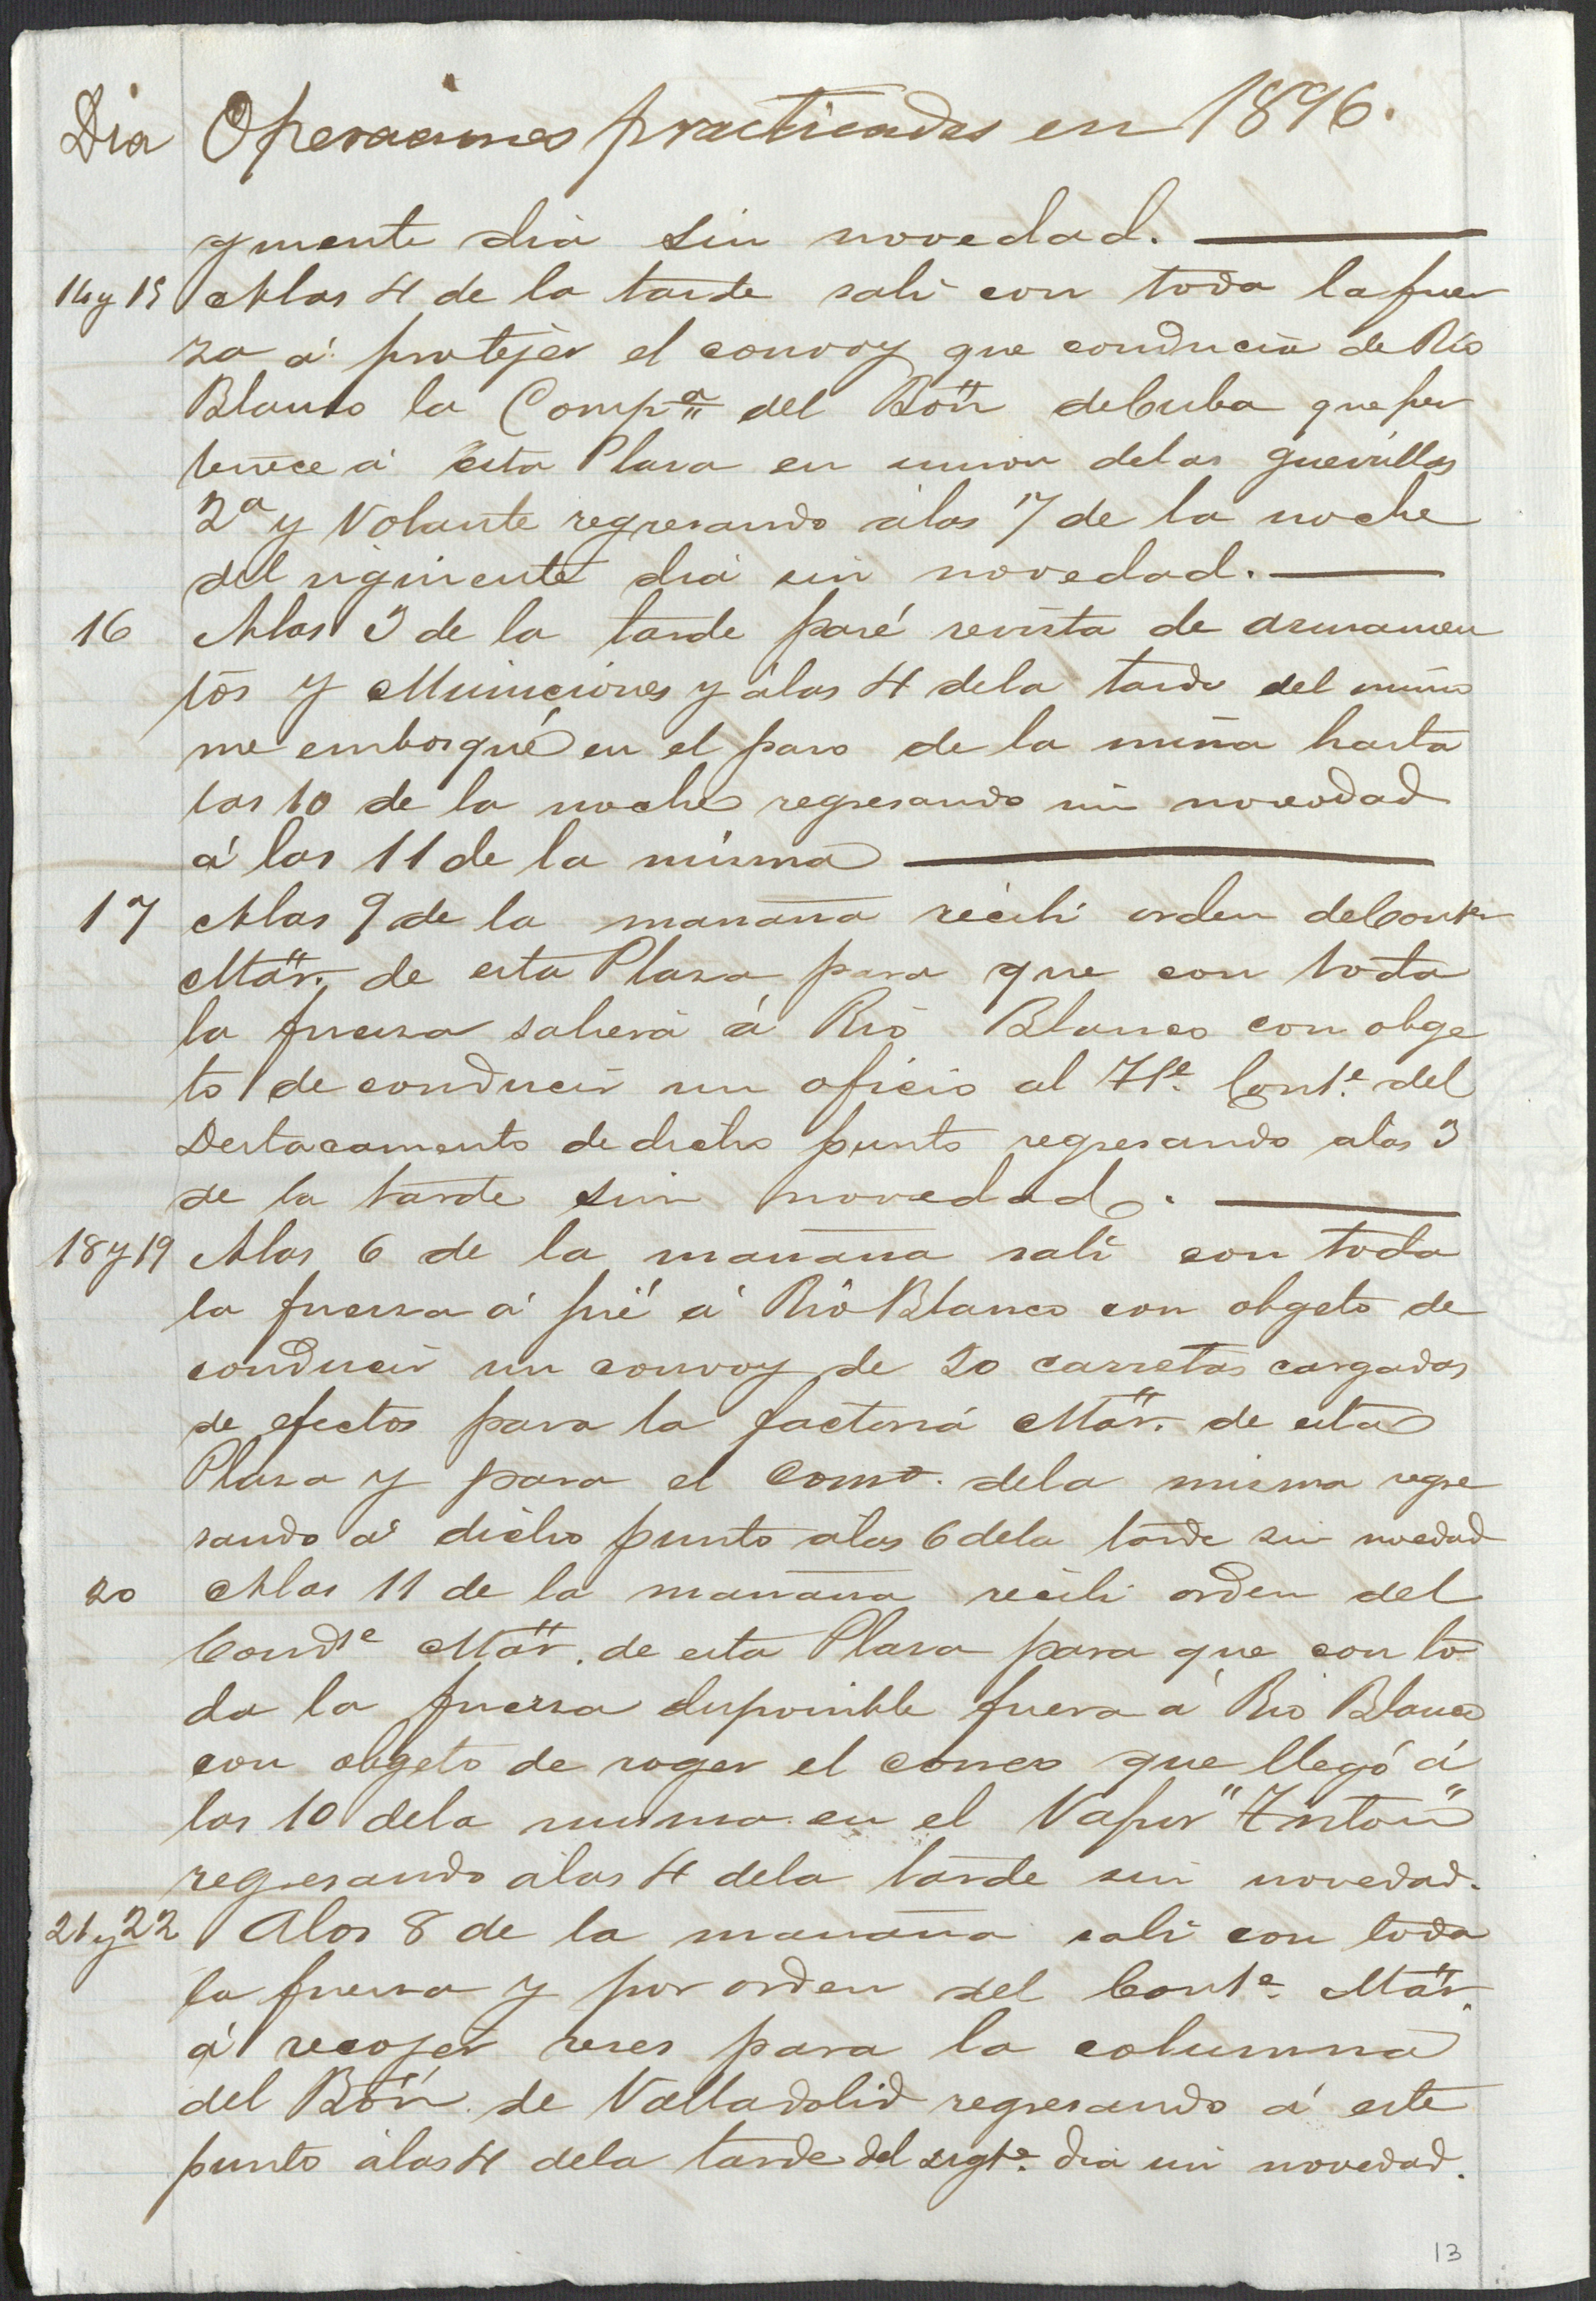 Dia Operaciones practicadas en 1896.
guiente dia sin novedad.
14 y 15 Alas 4 de la tarde sali con toda la fuer
za á protejer el convoy que conducia de Rio
Blanco la Compª del Bön de Cuba que per
tenece á esta Plaza en union delas guerrillas
2ª y Volante regresando álas 7 de la noche
del siguiente dia sin novedad.
16 Alas 3 de la tarde pasé revista de armamen
tos y Municiones y álas 4 dela tarde del mismo
me embosqué en el paso de la mina hasta
las 10 de la noche regresando sin novedad
á las 11 de la misma
17 Alas 9 de la mañana recibi orden del Comte
Mär. de esta Plaza para que con toda
la fuerza saliera á Rio Blanco con obge
to de conducir un oficio al Tte. Comte. del
Destacamento de dicho punto regresando alas 3
de la tarde sin novedad.
18 y 19 Alas 6 de la mañana sali con toda
la fuerza á pié á Rio Blanco con obgeto de
conducir un convoy de 20 carretas cargadas
de efectos para la factoria Mär. de esta
Plaza y para el Como. dela misma regre
sando á dicho punto alas 6 dela tarde sin novedad
20 Alas 11 de la mañana recibi orden del
Comdte Mär. de esta Plaza para que con to
da la fuerza disponible fuera á Rio Blanco
con obgeto de coger el correo que llegó á
las 10 dela misma en el Vapor "Triton"
regresando alas 4 dela tarde sin novedad.
21 y 22 Alas 8 de la mañana sali con toda
la fuerza y por orden del Comte. Mär.
á recojer reses para la columna
del Bön. de Valladolid regresando á este
punto álas 4 dela tarde del sigte. dia sin novedad.
13